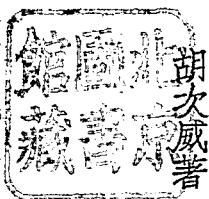 胡次威著
北京
圖書
館藏